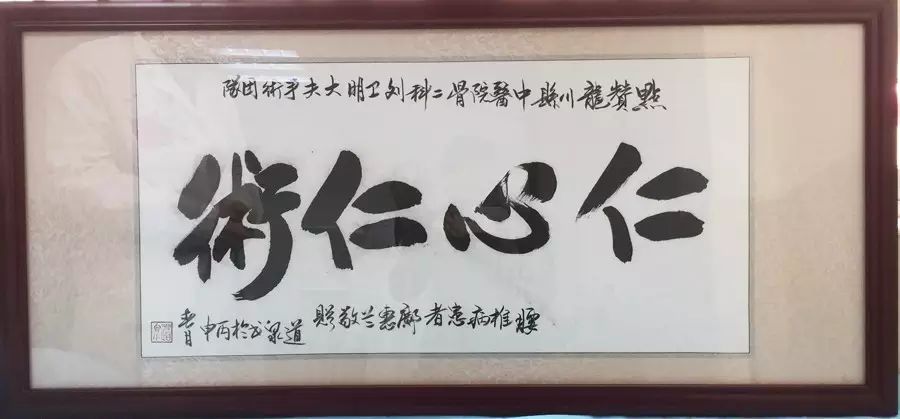 點贊龍川縣中醫院骨二科刘卫明大夫手術团隊
仁心仁術
腰椎病患者鄺惠兰敬贈
道泉书於丙申
春月